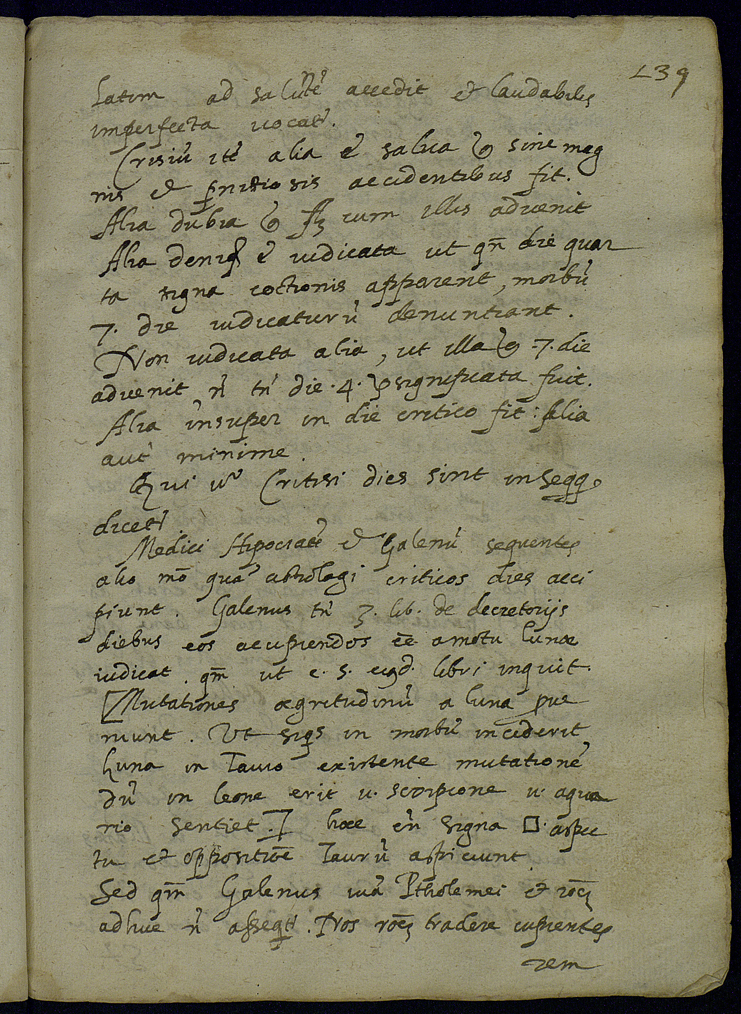 139
ad salutē accedit et laudabilis
imperfecta vocat̄.
Crisiū itē alia ē salva sine mag
nis et ꝑnitiosis accidentibus fit.
Alia dubia cum illis advenit
Alia deniq̃ ē iudicata ut qn̄ die quar
ta signa coctionis apparent, morbū
7. die iudicaturū denuntiant.
Non iudicata alia, ut illa 7. die
advenit n̄ tn̄ die .4. significata fuit.
Alia insuper in die critico fit: alia
aut̄ minime.
Qui v̄ Critici dies sint in seqq.
dicet̄
Medici Hipocratē et Galenū sequentes
alio mō quā astrologi criticos dies acci
piunt. Galenus tn̄ 3. lib. de decretorijs
diebus eos accipiendos eē a motu lunae
iudicat. qm̄ ut c. 5. eiusd. libri inquit.
[Mutationes aegritudinū a luna prove
niunt. Ut siq̄s in morbū inciderit
Luna in Tauro existente mutationē
dū in leone erit v. scorpione v. aqua
rio sentiet.] haec en̄ signa □ aspec
tu et oppositiōe Taurū aspiciunt
Sed qm̄ Galenus viā Ptholemei et rōēs
adhuc n̄ asseqt̄. Nos rōēs tradere cupientes
rem